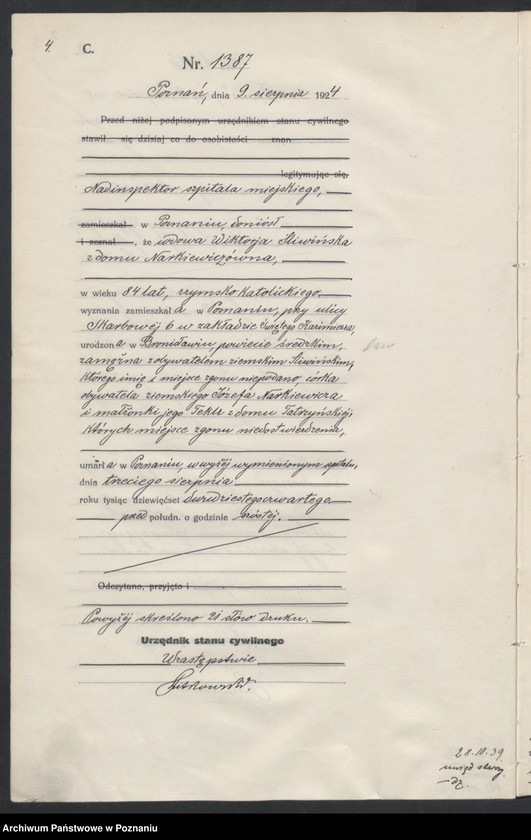 4.
C.
Nr. 1387
Poznań, dnia 9. sierpnia 1924
Przed niżej podpisanym urzędnikiem stanu cywilnego
stawił się dzisiaj co do osobistości znan
legitymując się,
Nadinspektor szpitala miejskiego,
zamieszkał w Poznaniu, doniósł
i zeznał, że wdowa Wiktorja Śliwińska
z domu Narkiewiczówna,
w wieku 84 lat, rzymsko katolickiego
wyznania zamieszkała w Poznaniu, przy ulicy
Skarbowej 6 w zakładzie Świętego Kazimierza,
urodzona w Bronisławiu, powiecie średzkim,
zamężna z obywatelem ziemskim Śliwińskim,
którego imię i miejsce zgonu niepodano, córka
obywatela ziemskiego Józefa Narkiewicza
i małżonki jego Tekli z domu
których miejsce zgonu niedostwierdzenia,
umarła w Poznaniu, w wyżej wymienionym szpitalu,
dnia trzeciego sierpnia
roku tysiąc dziewięćset dwudziestego czwartego
przed połudn. o godzinie szóstej.
Odczytano, przyjęto i
Powyżej skreślono 21 słów druku.
Urzędnik stanu cywilnego
W zastępstwie
28.10.39
Archiwum Państwowe w Poznaniu